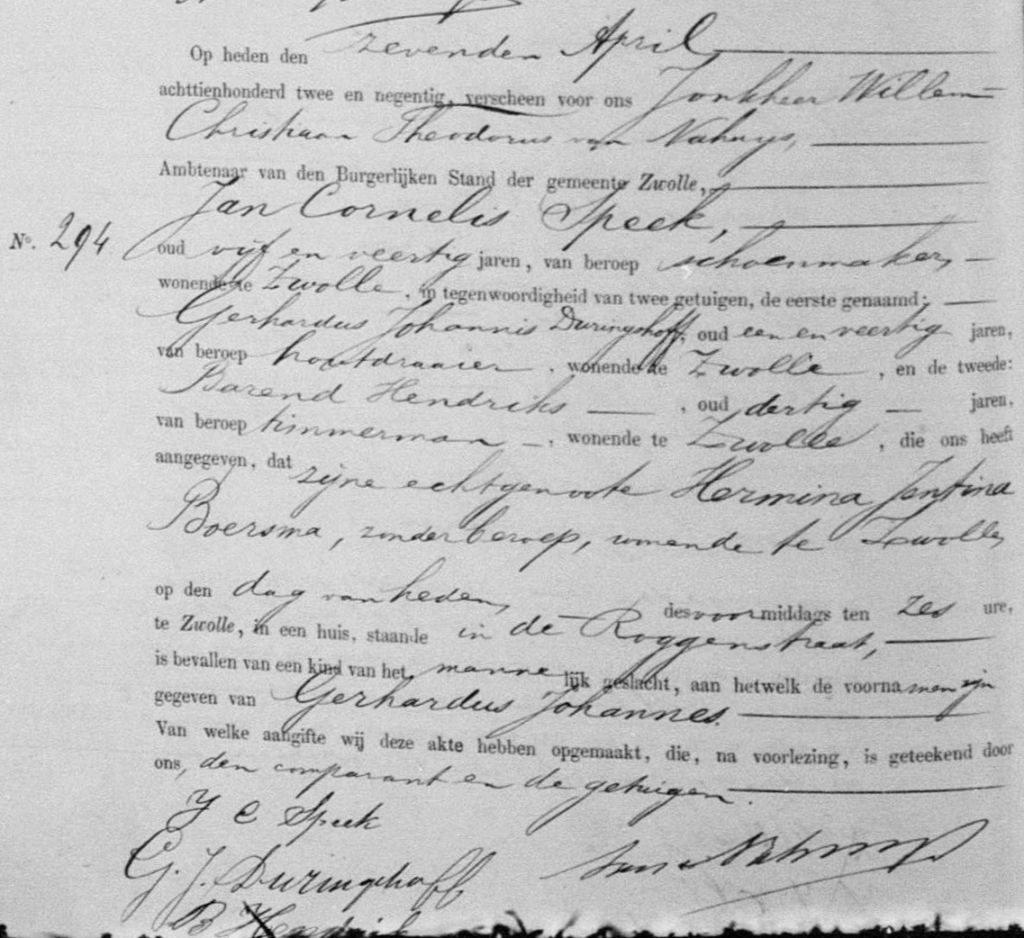 Op heden den zevenden April
achttienhonderd twee en negentig, verscheen voor ons Jonkheer Willem
Christiaan Theodorus van Nahuys,
Ambtenaar van den Burgerlijken Stand der gemeente Zwolle,
Jan Cornelis Speek,
No. 294
oud vijf en veertig jaren, van beroep schoenmaker,
wonende te Zwolle, in tegenwoordigheid van twee getuigen, de eerste genaamd:
Gerhardus Johannis Duringshoff, oud een en veertig jaren,
van beroep houtdraaier, wonende te Zwolle, en de tweede:
Barend Hendriks, oud dertig jaren,
van beroep timmerman, wonende te Zwolle, die ons heeft
aangegeven, dat zijne echtgenoote Hermina Jentina
Boersma, zonder beroep, wonende te Zwolle,
op den dag van heden, des voormiddags ten zes ure,
te Zwolle, in een huis, staande in de Roggenstraat,
is bevallen van een kind van het mannelijk geslacht, aan hetwelk de voornamen zijn
gegeven van Gerhardus Johannes.
Van welke aangifte wij deze akte hebben opgemaakt, die, na voorlezing, is geteekend door
ons, den comparant en de getuigen.
J C Speek
G. J. Duringshoff
B Hendriks